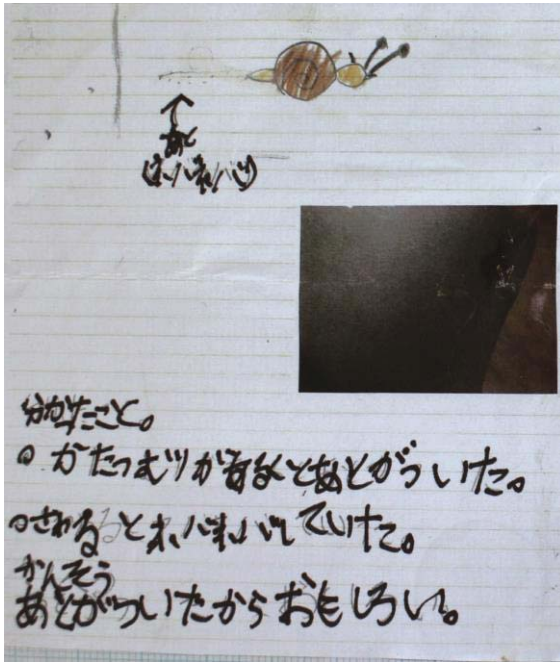 ↑
あと
(ネバネバ)
分かたこと。
○かたつむりがあるくとあとがついた。
○さわるとネバネバしていた。
かんそう
あとがついたからおもしろい。